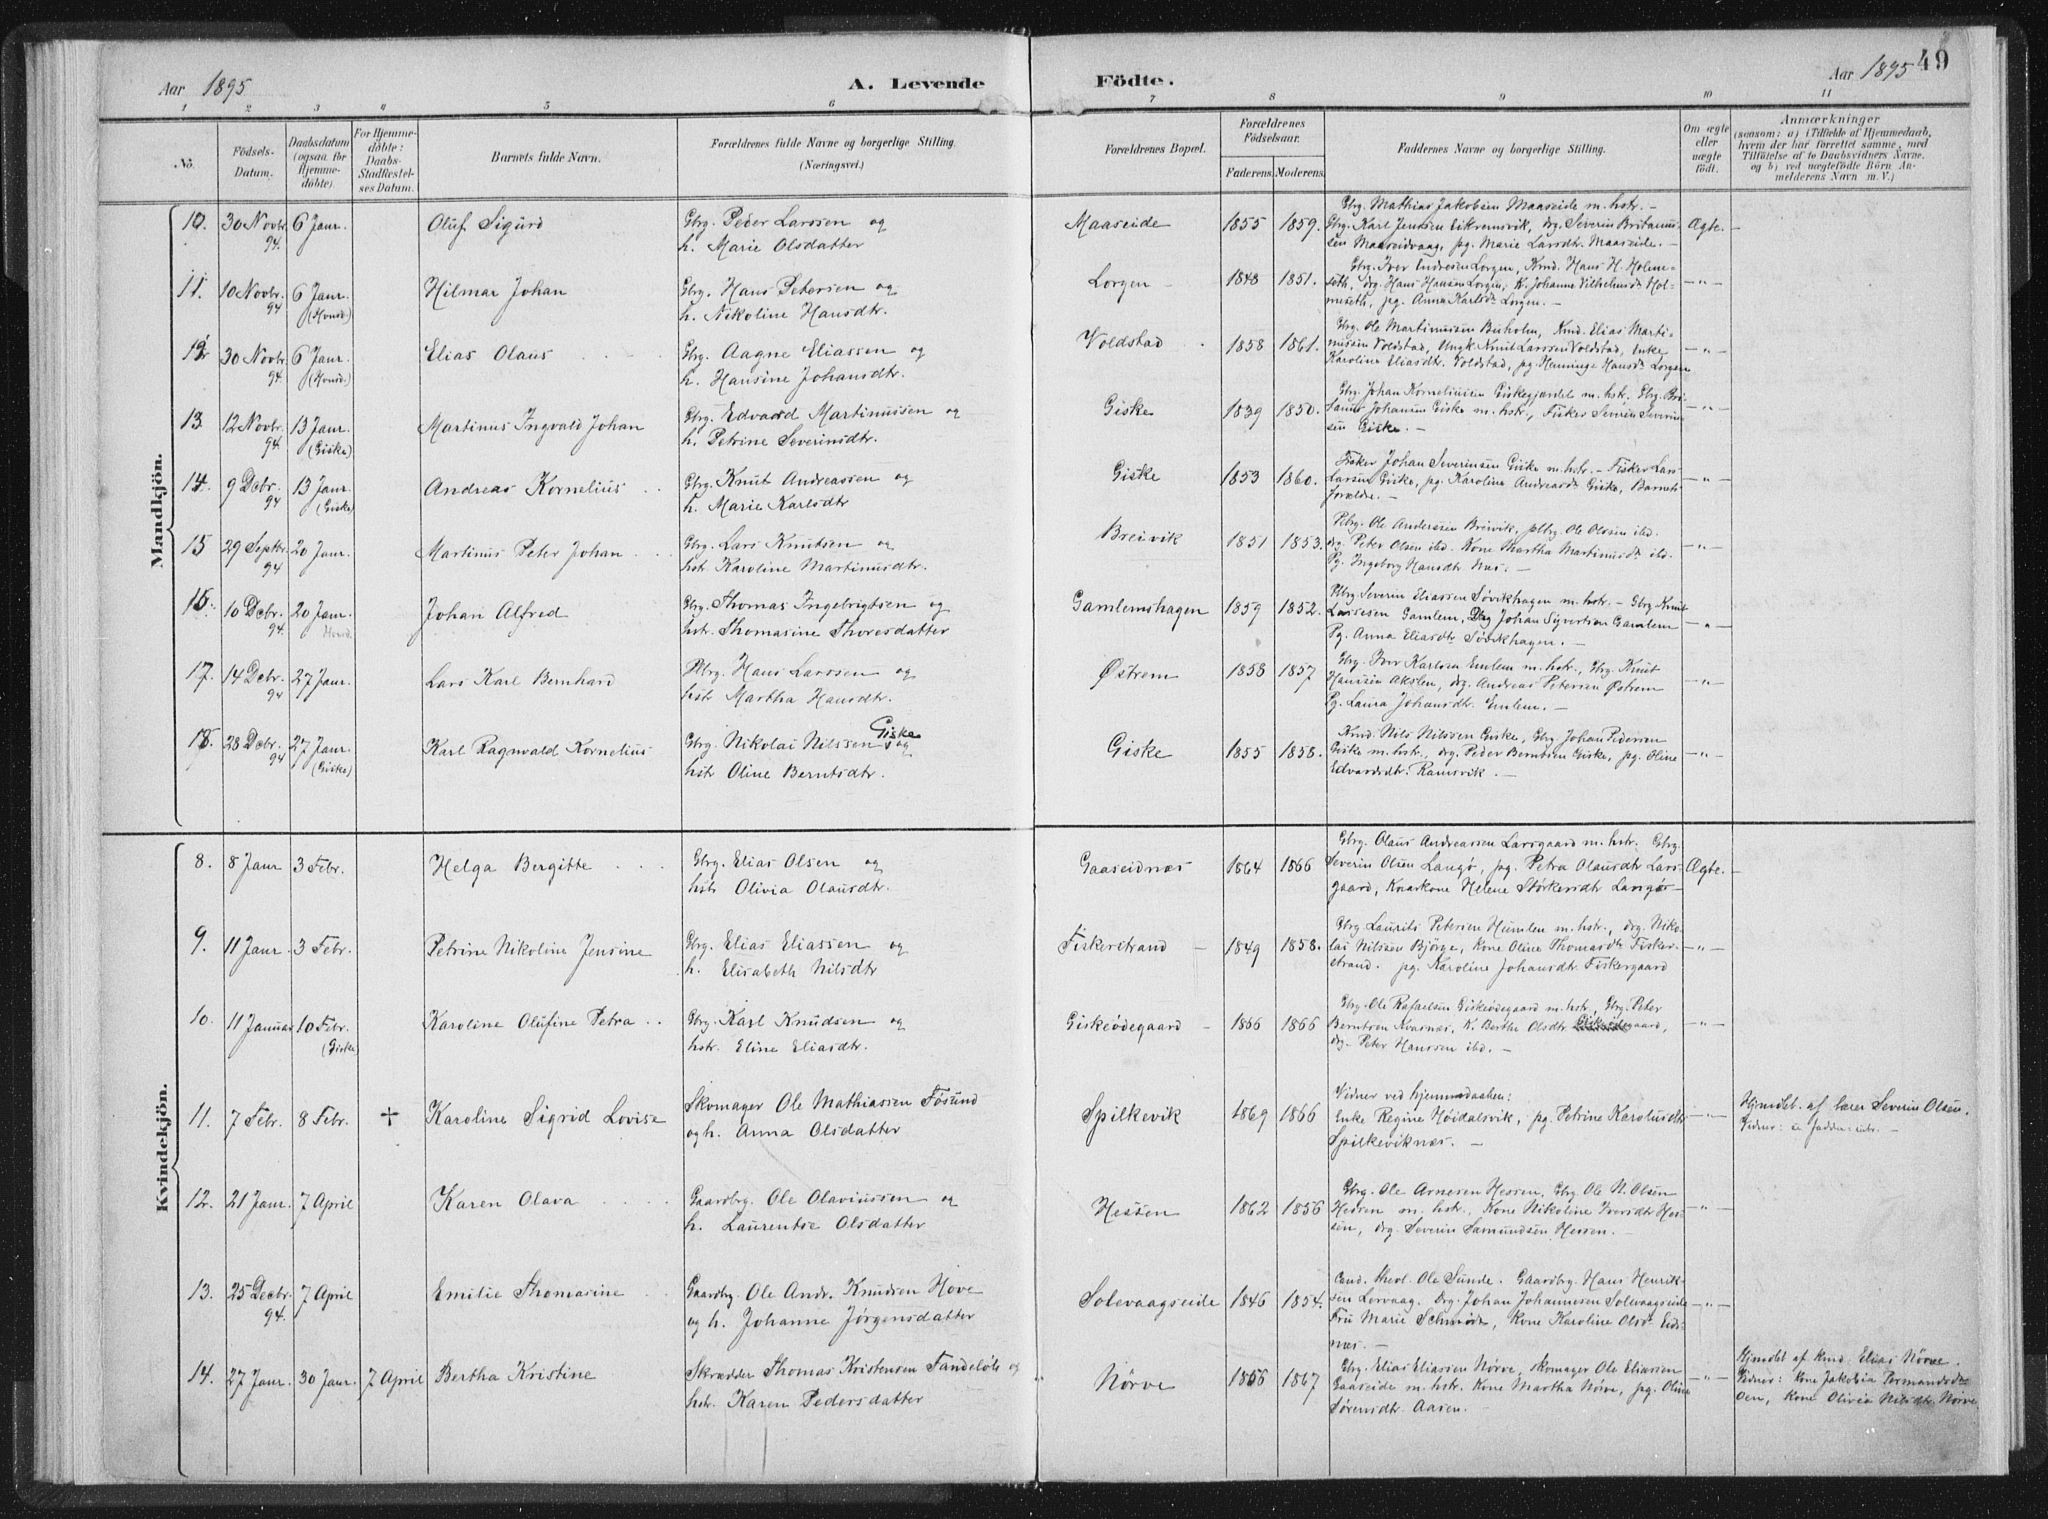 Aar 1895
A. Levende
Födte.
Aar 1895
49
1 2 3 4 5 6 7 8 9 10 11
No.
Födsels-
Datum.
Daabsdatum
(ogsaa for
Hjemme-
döbte).
For Hjemme-
döbte:
Daabs-
Stadfæstel-
ses Datum.
Barnets fulde Navn.
Forældrenes fulde Navne og borgerlige Stilling.
(Næringsvei.)
Forældrenes Bopæl.
Forældrenes
Fødselsaar.
Faderens. Moderens.
Faddernes Navne og borgerlige Stilling.
Om ægte
eller
uægte
født.
Anmærkninger
(saasom: a) i Tilfælde af Hjemmedaab,
hvem der har forrettet samme, med
Tilföielse af to Daabsvidners Navne.
og b) ved uægtefödte Börn An-
melderens Navn m. V.)
Mandkjön.
10. 30 Novbr. 94. 6 Janr. Oluf Sigurd
Gbrg. Peder Larssen og
h. Marie Olsdatter
Maaseide 1855 1859.
Gbrg. Mathias Jakobsen Maaseide m. hstr. —
Gbrg. Karl Jenssen Eikremsvik, drg. Severin
sen Maaseidvaag, pg. Marie Larsdtr. Maaseide. —
Ægte. —
11. 10 Novbr. 94 6 Janr. Hilmar Johan
Gbrg. Hans Petersen og
h. Nikoline Hansdtr.
Lorgen 1848 1851.
Gbrg. Iver Endresen Lorgen, Kmd. Hans H. Holme-
seth, drg. Hans Hansen Lorgen, K. Johanne Vilhelmsdt Hol-
meseth, pg. Anna Karlsdt. Lorgen. —
—"—
12 30 Novbr. 94 6 Janr. Elias Olaus
Gbrg. Aagne Eliassen og
h. Hansine Johansdtr.
Voldstad 1858 1861.
Gbrg. Ole Martinussen Buholm, Kmd. Elias Marti-
nussen Voldstad, Ungk. Knut Larssen Voldstad, Enke
Karoline Eliasdtr. Voldstad, pg. Henninge Hansdt. Lorgen
—"—
13 12 Novbr. 94 13 Janr. (Giske) Martinus Ingvald Johan
Gbrg. Edvard Martinussen og
h. Petrine Severinsdtr.
Giske 1839 1850.
Gbrg. Johan Korneliussen Giskegjerdet m. hstr. Gbrg.
Johansen Giske m. hstr., Fisker Severin Severin-
sen Giske. —
—"—
14. 9 Dcbr. 94 13 Janr. (Giske) Andreas Kornelius
Gbrg. Knut Andreassen og
h. Marie Karlsdtr
Giske 1853 1860.
Fisker Johan Severinsen Giske m. hstr. — Fisker Lars
Larsen Giske, pg. Karoline Andreasdt. Giske, Barnets
forældre. —
—"—
15 29 Septbr. 94 20 Janr. Martinus Peter Johan
Gbrg. Lars Knutsen og
hstr Karoline Martinusdtr.
Breivik 1851 1853.
Pbrg. Ole Anderssen Breivik, plbrg. Ole Olsen ibd.
drg. Peter Olsen ibd. Kone Martha Martinusdt. ibd.
Pg. Ingeborg Hansdtr Næs. —
—"—
16. 10 Dcbr. 94 20 Janr. Johan Alfred
Gbrg. Thomas Ingebrigtsen og
hstr. Thomasine Thoresdatter
Gamlemshagen 1859 1852.
Plbrg. Severin Eliassen Søvikhagen m. hstr. — Gbrg Knut
Lassesen Gamlem, Drg Johan Syvertsen Gamlem
Pg. Anna Eliasdtr Søvikhagen. —
—"—
17. 14 Dcbr. 94 27 Janr. Lars Karl Bernhard
Plbrg. Hans Larssen og
hstr Martha Hansdtr.
Østrem 1858 1857
Gbrg. Iver Karlsen Emlem m. hstr., Gbrg. Knut
Hanssen Akslen, drg. Andreas Petersen Østrem
Pg. Laura Johansdtr. Emlem. —
—"—
18. 28 Dcbr. 94 27 Janr. (Giske) Karl Ragnvald Kornelius
Gbrg. Nikolai Nilssen Giske og
hstr Oline Berntsdtr.
Giske 1855 1858.
Kmd. Nils Nilssen Giske, Gbrg Johan Pedersen
Giske m. hstr., drg. Peder Berntsen Giske, pg. Oline
Edvardsdtr. Ramsvik. —
—"—
Kvindekjön.
8. 8 Janr 3 Febr. Helga Bergitte
Gbrg. Elias Olsen og
hstr Olivia Olausdtr.
Gaaseidnæs 1864 1866
Gbrg. Olaus Andreassen Larsgaard m. hstr. Gbrg.
Severin Olsen Langø, pg. Petra Olausdtr Lars-
gaard, Kaarkone Helene Størkersdtr Langø —
Ægte. —
9. 11 Janr. 3 Febr. Petrine Nikoline Jensine
Gbrg. Elias Eliassen og
h. Elisabeth Nilsdtr
Fiskerstrand 1849 1858.
Gbrg Laurits Petersen Humlen m. hstr., drg. Niko-
lai Nilssen Bjørge, Kone Oline Thomasdtr Fisker-
strand. pg. Karoline Johansdtr. Fiskergaard
—"—
10. 11 Januar 10 Febr. (Giske) Karoline Olufine Petra
Gbrg. Karl Knudsen og
hstr. Eline Eliasdtr.
Giskeödegaard 1866 1866
Gbrg. Ole Rafaelsen Giskeödegaard m. hstr, Gbrg. Peter
Berntsen Kvasnæs, K. Berthe Olsdtr. Giskeödegaard,
drg. Peter Hanssen ibd. —
—"—
11. 7 Febr. 8 Febr. + Karoline Sigrid Lovise
Skomager Ole Mathiassen Føsund
og h. Anna Olsdatter
Spilkevik 1869 1866
Vidner ved hjemmedaaben:
Enke Regine Høidalsvik, pg. Petrine Karolusdtr
Spilkeviknæs. —
—"—
Hjmdbt. af lærer Severin Olsen.
12. 21 Janr. 7 April Karen Olava
Gaardbrg. Ole Olaviussen og
h. Laurentse Olsdatter
Hessen 1862 1856
Gbrg. Ole Arnesen Hessen, Gbrg Ole N. Olsen
Hessen m. hstr., Kone Nikoline Iversdtr Hes-
sen, drg. Severin Samundsen Hessen. —
—"—
13. 25 Decbr. 94. 7 April Emilie Thomasine
Gaardbrg. Ole Andr. Knudsen Hove
og h. Johanne Jørgensdatter
Solevaagseide 1846 1854.
Cand. theol. Ole Sunde. Gaardbrg. Hans Henrik-
sen Lorvaag. Drg. Johan Johannesen Solevaagseide
Fru Marie Schmidt, Kone Karoline Olsdt. Eids-
næs. —
—"—
14. 27 Janr. 30 Janr. 7 April Bertha Kristine
Skrædder Thomas Kristensen Tandeløk og
hstr. Karen Pedersdatter
Nörve 1866 1867
Gbrg. Elias Eliassen Nörve, skomager Ole Eliassen
Gaaseide m. hstr. Kone Martha Nörve, pg. Oline
Sørensdtr. Aasen. —
—"—
Hjmdbt af Kmd. Elias Nörve.
Vidner: Kone Jakobia
Oen, Kone Olivia Nilsdtr. Nörve